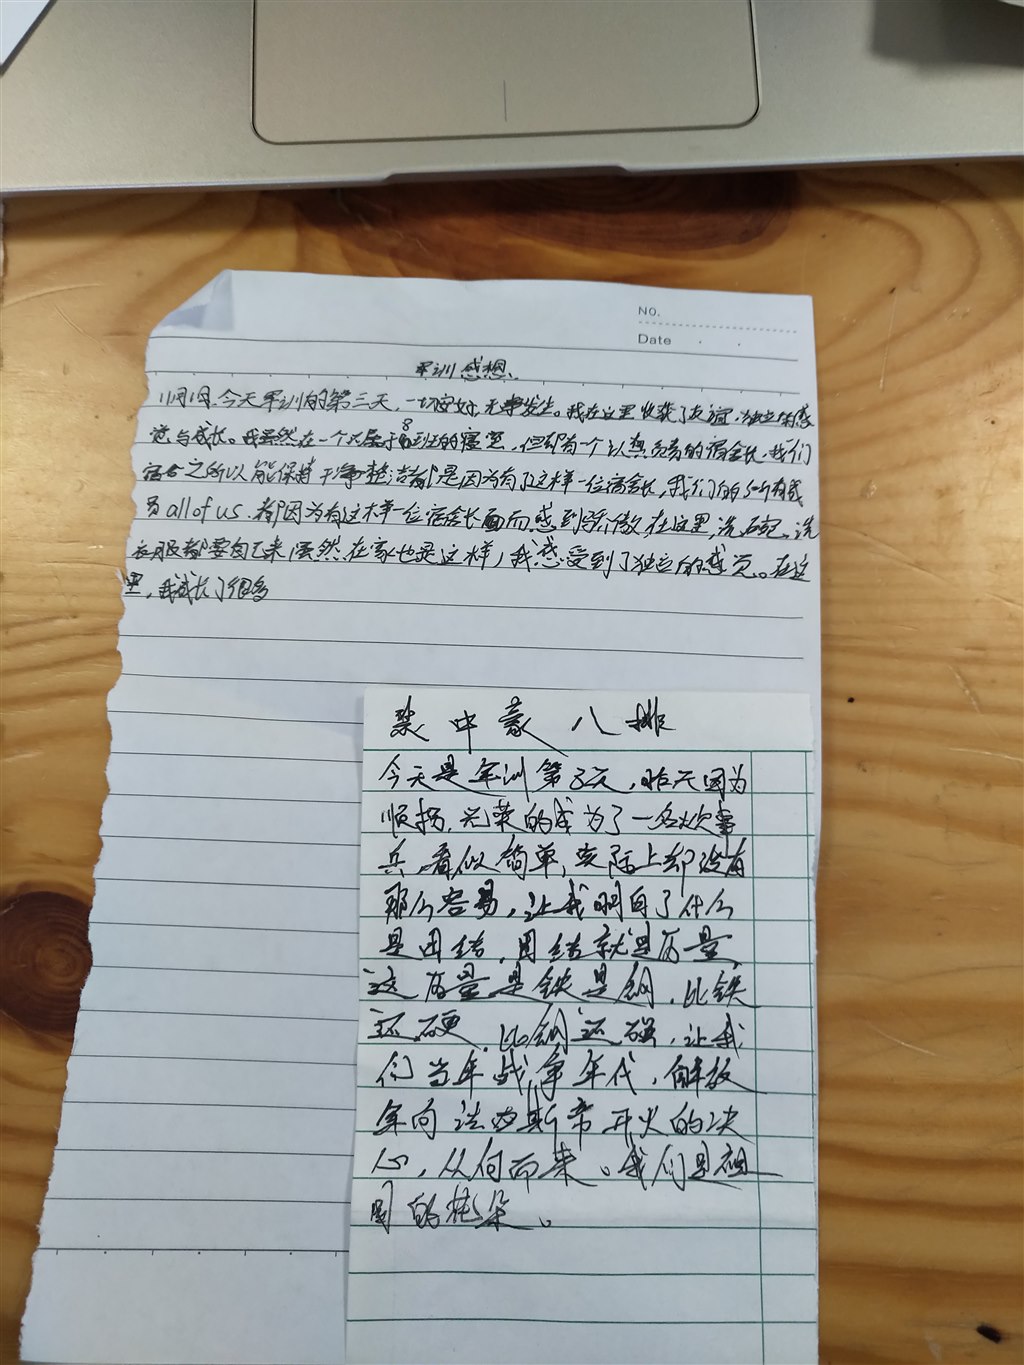 NO.
Date
军训感想
11月1日.今天军训的第三天,一切安好,无事发生。我在这里收获了友谊,独立的感
觉与成长。我虽然在一个不属于8班的寝室,但却有一个认真负责的宿舍长,我们
宿舍之所以能保持干净整洁都是因为有了这样一位宿舍长,我们的所有成
员all of us.都因为有这样一位宿舍长而感到骄傲,在这里,洗碗。洗
衣服都要自己来虽然在家也是这样,我感受到了独立的感觉。在这
里,我成长了很多
中豪 八排
今天是军训第3天,昨天因为
顺拐,光荣的成为了一名炊事
兵,看似简单,实际上却没有
那么容易,让我明白了什么
是团结,团结就是力量
这力量是铁是钢,比铁
还硬,比钢还强,让我
们当年战争年代,解放
军向法西斯帝开火的决
心,从何而来。我们是祖
国的花朵。